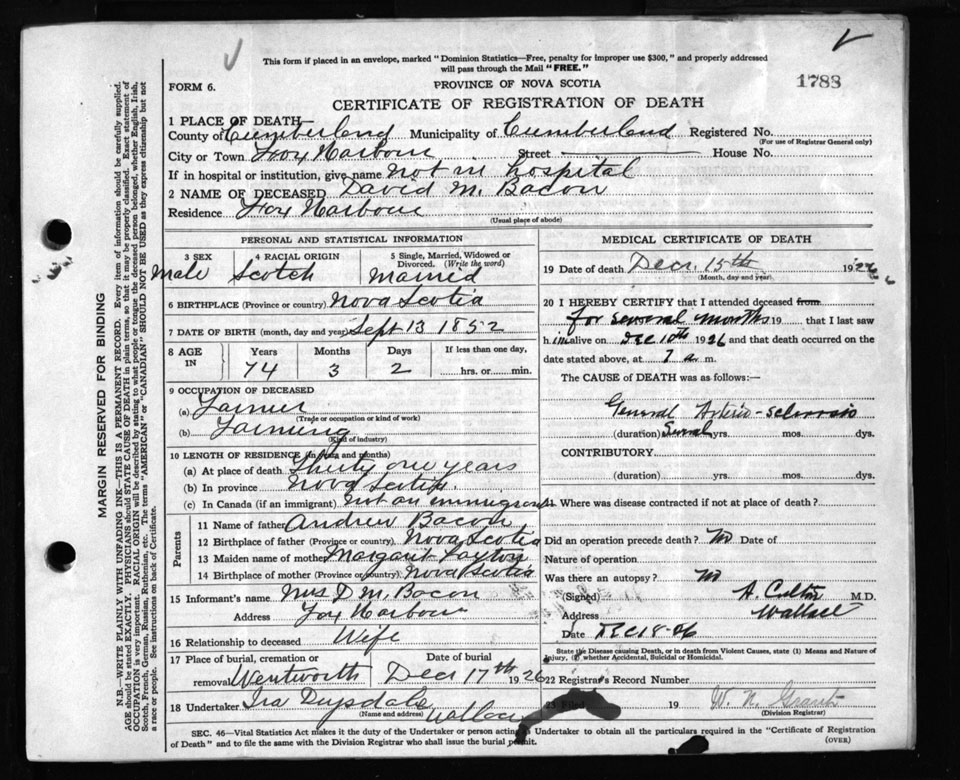 This form if placed in an envelope, marked "Dominion Statistics—Free, penalty for improper use $300," and properly addressed
will pass through the Mail "FREE."
1788
FORM 6.
PROVINCE OF NOVA SCOTIA
CERTIFICATE OF REGISTRATION OF DEATH
1 PLACE OF DEATH—
County of Cumberland Municipality of Cumberland Registered No.
(For use of Registrar General only)
City or Town Fox Harbour Street House No.
If in hospital or institution, give name not in hospital
2 NAME OF DECEASED David M. Bacon
Residence Fox Harbour
(Usual place of abode)
PERSONAL AND STATISTICAL INFORMATION
3 SEX 4 RACIAL ORIGIN 5 Single, Married, Widowed or
Divorced. (Write the word)
Male Scotch Married
6 BIRTHPLACE (Province or country) Nova Scotia
7 DATE OF BIRTH (month, day and year) Sept 13 1852
8 AGE IN Years Months Days If less than one day,
74 3 2 hrs. or min.
9 OCCUPATION OF DECEASED
(a) Farmer
(Trade or occupation or kind of work)
(b) Farming
(Kind of industry)
10 LENGTH OF RESIDENCE (in years and months)
(a) At place of death Thirty one years
(b) In province Nova Scotia
(c) In Canada (if an immigrant) not an immigrant
Parents
11 Name of father Andrew Bacon
12 Birthplace of father (Province or country) Nova Scotia
13 Maiden name of mother Margaret
14 Birthplace of mother (Province or country) Nova Scotia
15 Informant's name Mrs D. M. Bacon
Address Fox Harbour
16 Relationship to deceased Wife
17 Place of burial, cremation or Date of burial
removal Wentworth Dec 17th 1926
18 Undertaker Ira Drysdale
(Name and address) Wallace
MEDICAL CERTIFICATE OF DEATH
19 Date of death Dec. 15th 1926
(Month, day and year)
20 I HEREBY CERTIFY that I attended deceased from
for several months 19 that I last saw
h im alive on DEC 10th 1926 and that death occurred on the
date stated above, at 7 a m.
The CAUSE OF DEATH was as follows:
General Arterio-sclerosis
(duration) Several yrs. mos. dys.
CONTRIBUTORY
(duration) yrs. mos. dys.
21 Where was disease contracted if not at place of death?
Did an operation precede death? No Date of
Nature of operation
Was there an autopsy? No
(Signed) A. M.D.
Address Wallace
Date
State the Disease causing Death, or in death from Violent Causes, state (1) Means and Nature of
Injury, (2) whether Accidental, Suicidal or Homicidal.
22 Registrar's Record Number
23 Filed 19 W. N.
(Division Registrar)
SEC. 46—Vital Statistics Act makes it the duty of the Undertaker or person acting as Undertaker to obtain all the particulars required in the "Certificate of Registration
of Death" and to file the same with the Division Registrar who shall issue the burial permit. (OVER)
MARGIN RESERVED FOR BINDING
N.B.—WRITE PLAINLY WITH UNFADING INK—THIS IS A PERMANENT RECORD. Every item of information should be carefully supplied.
AGE should be stated EXACTLY. PHYSICIANS should STATE CAUSE OF DEATH in plain terms, so that it may be properly classified. Exact statement of
OCCUPATION is very important. RACIAL ORIGIN will be described by stating to what people or tongue the deceased person belonged, whether English, Irish,
Scotch, French, German, Russian, Ruthenian, etc. The terms "AMERICAN" or "CANADIAN" SHOULD NOT BE USED as they express citizenship but not
a race or people. See instructions on back of Certificate.